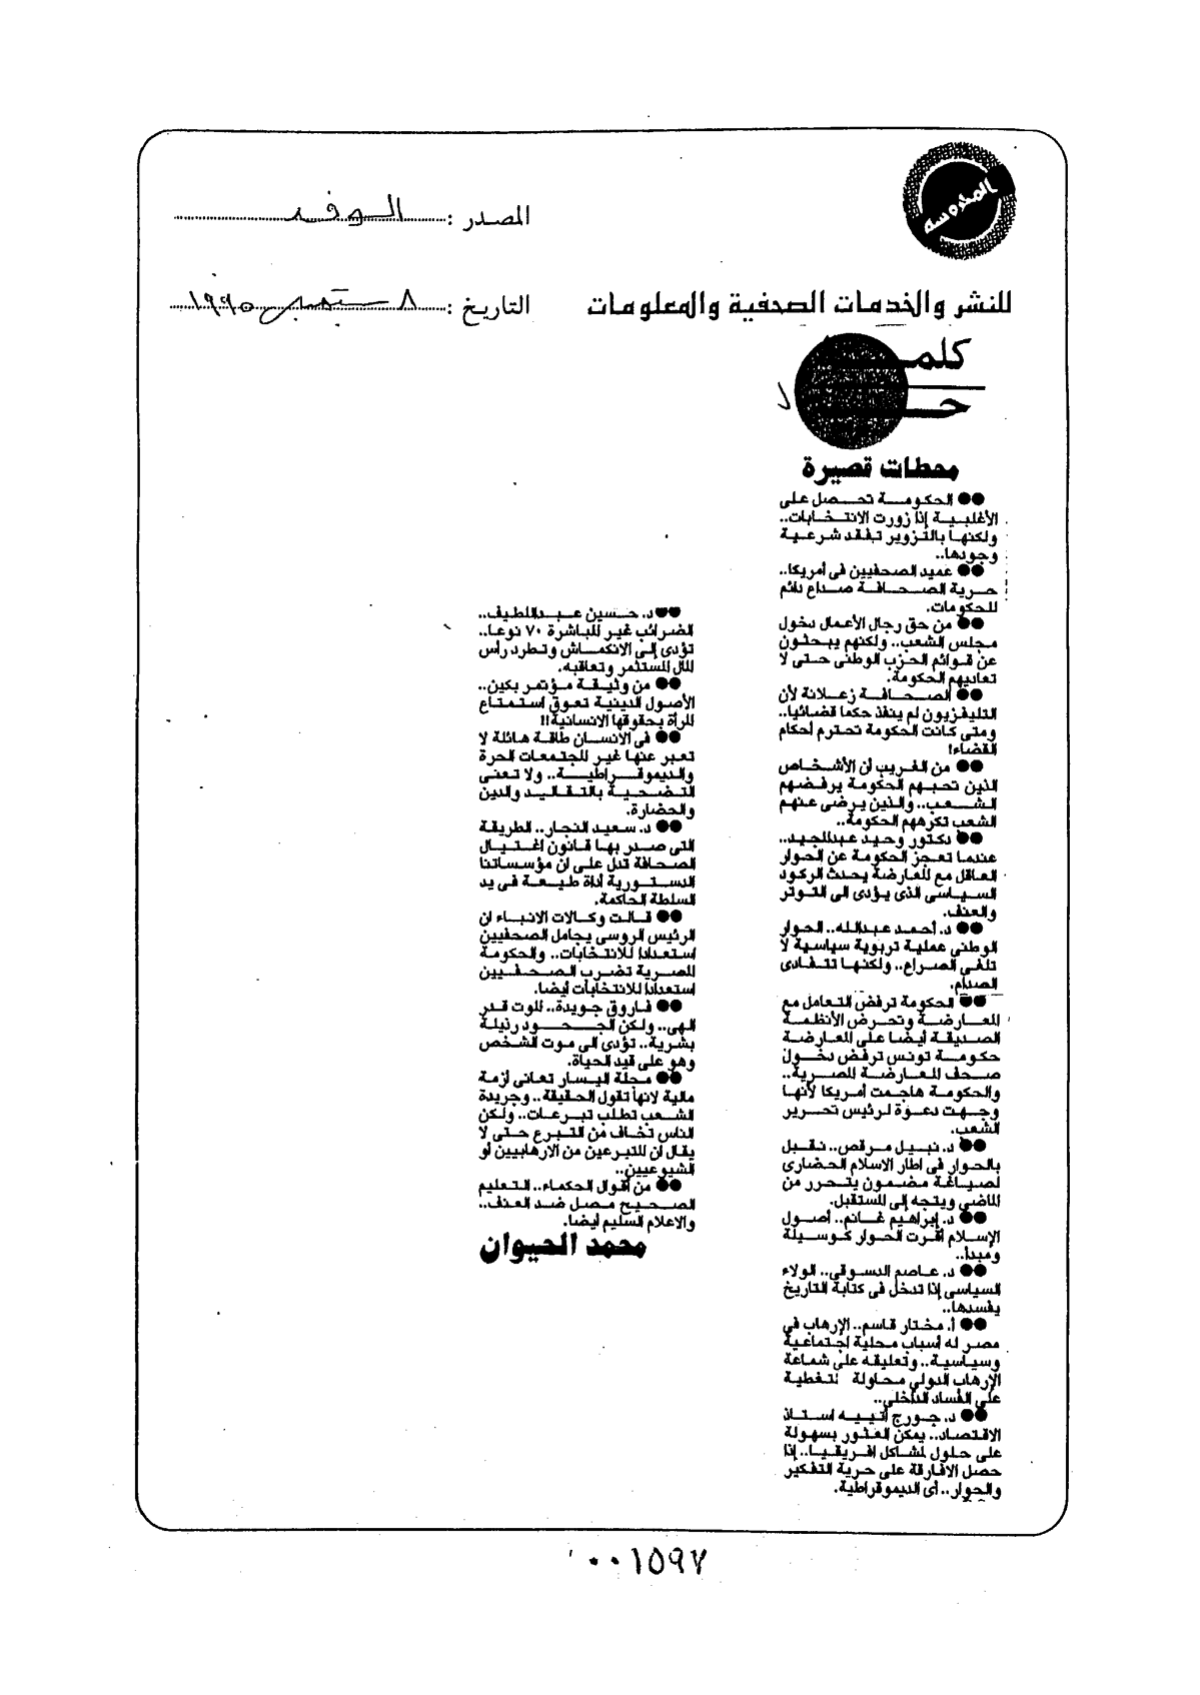 المحروسة
المصدر : الوفد
للنشر والخدمات الصحفية والمعلومات
التاريخ : ٨ سبتمبر ١٩٩٥
كلمة
حب
محطات قصيرة
●● الحكومة تحصل على
الأغلبية إذا زورت الانتخابات..
ولكنها بالتزوير تفقد شرعية
وجودها..
●● عميد الصحفيين فى أمريكا..
حرية الصحافة صداع دائم
للحكومات.
●● من حق رجال الأعمال دخول
مجلس الشعب.. ولكنهم يبحثون
عن قوائم الحزب الوطنى حتى لا
تعاديهم الحكومة.
●● الصحافة زعلانة لأن
التليفزيون لم ينفذ حكما قضائيا..
ومتى كانت الحكومة تحترم أحكام
القضاء!
●● من الغريب أن الأشخاص
الذين تحبهم الحكومة يرفضهم
الشعب.. والذين يرضى عنهم
الشعب تكرههم الحكومة..
●● دكتور وحيد عبدالمجيد..
عندما تعجز الحكومة عن الحوار
العاقل مع المعارضة يحدث الركود
السياسى الذى يؤدى الى التوتر
والعنف.
●● د. أحمد عبدالله.. الحوار
الوطنى عملية تربوية سياسية لا
تلغى الصراع.. ولكنها تتفادى
الصدام.
●● الحكومة ترفض التعامل مع
المعارضة وتحرض الأنظمة
الصديقة أيضا على المعارضة
حكومة تونس ترفض دخول
صحف المعارضة المصرية..
والحكومة هاجمت أمريكا لأنها
وجهت دعوة لرئيس تحرير
الشعب.
●● د. نبيل مرقص.. نقبل
بالحوار فى اطار الاسلام الحضارى
لصياغة مضمون يتحرر من
الماضى ويتجه إلى المستقبل.
●● د. إبراهيم غانم.. أصول
الإسلام أقرت الحوار كوسيلة
ومبدا..
●● د. عاصم الدسوقى.. الولاء
السياسى إذا تدخل فى كتابة التاريخ
يفسدها..
●● أ. مختار قاسم.. الإرهاب فى
مصر له أسباب محلية اجتماعية
وسياسية.. وتعليقه على شماعة
الإرهاب الدولى محاولة لتغطية
على الفساد الداخلى..
●● د. جورج أتييه استاذ
الاقتصاد.. يمكن العثور بسهولة
على حلول لمشاكل افريقيا.. إذا
حصل الافارقة على حرية التفكير
والحوار.. أى الديموقراطية.
●● د. حسين عبداللطيف..
الضرائب غير المباشرة ٧٠ نوعا..
تؤدى إلى الانكماش وتطرد رأس
المال المستثمر وتعاقبه.
●● من وثيقة مؤتمر بكين..
الأصول الدينية تعوق استمتاع
المرأة بحقوقها الانسانية!!
●● فى الانسان طاقة هائلة لا
تعبر عنها غير المجتمعات الحرة
والديموقراطية.. ولا تعنى
التضحية بالتقاليد والدين
والحضارة.
●● د. سعيد النجار.. الطريقة
التى صدر بها قانون اغتيال
الصحافة تدل على ان مؤسساتنا
الدستورية أداة طيعة فى يد
السلطة الحاكمة.
●● قالت وكالات الانباء ان
الرئيس الروسى يجامل الصحفيين
استعدادا للانتخابات.. والحكومة
المصرية تضرب الصحفيين
استعدادا للانتخابات أيضا.
●● فاروق جويدة.. الموت قدر
الهى.. ولكن الجحود رذيلة
بشرية.. تؤدى الى موت الشخص
وهو على قيد الحياة.
●● مجلة اليسار تعانى أزمة
مالية لانها تقول الحقيقة.. وجريدة
الشعب تطلب تبرعات.. ولكن
الناس تخاف من التبرع حتى لا
يقال ان المتبرعين من الارهابيين أو
الشيوعيين..
●● من أقوال الحكماء.. التعليم
الصحيح مصل ضد العنف..
والاعلام السليم أيضا.
محمد الحيوان
٠٠١٥٩٧